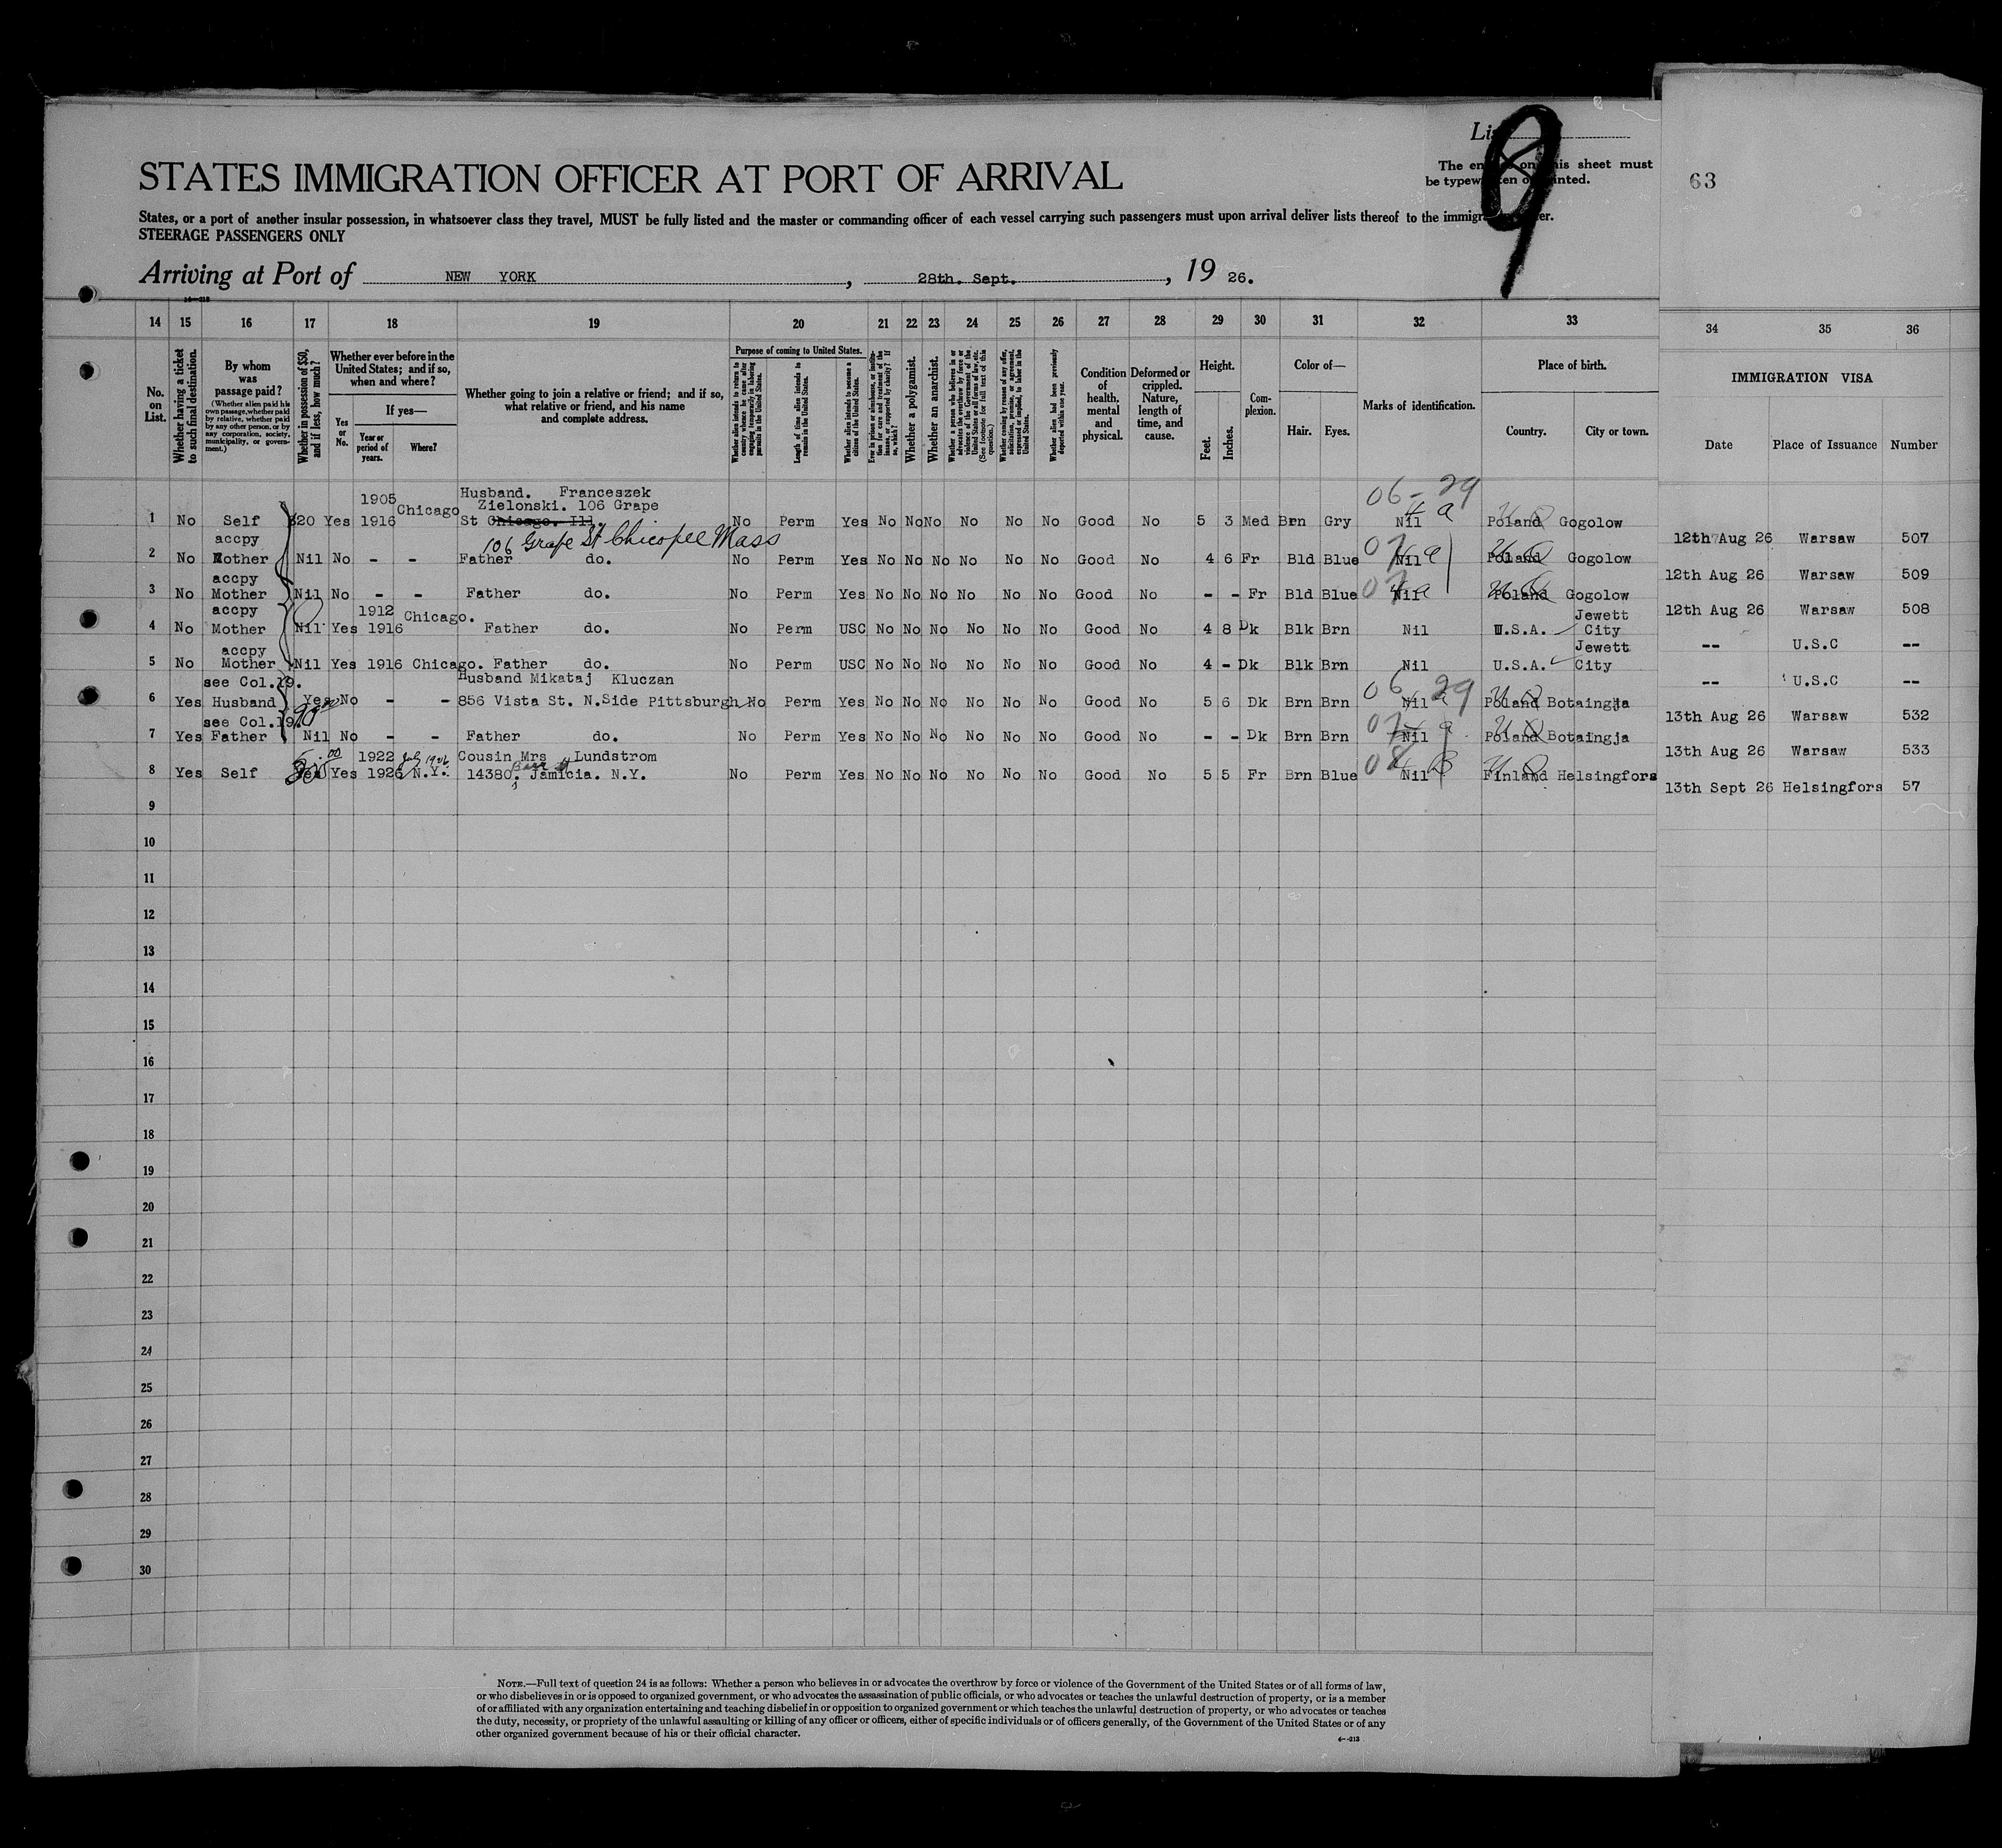 List 9
The entries on this sheet must
be typewritten or printed.
63
STATES IMMIGRATION OFFICER AT PORT OF ARRIVAL
States, or a port of another insular possession, in whatsoever class they travel, MUST be fully listed and the master or commanding officer of each vessel carrying such passengers must upon arrival deliver lists thereof to the immigration officer.
STEERAGE PASSENGERS ONLY
Arriving at Port of NEW YORK, 28th. Sept., 19 26.
14 15 16 17 18 19 20 21 22 23 24 25 26 27 28 29 30 31 32 33 34 35 36
No. on List.
Whether having a ticket to such final destination.
By whom was passage paid?
(Whether alien paid his own passage, whether paid by relative, whether paid by any other person, or by any corporation, society, municipality, or government.)
Whether in possession of $50, and if less, how much?
Whether ever before in the United States; and if so, when and where?
Yes or No.
If yes—
Year or period of years.
Where?
Whether going to join a relative or friend; and if so, what relative or friend, and his name and complete address.
Purpose of coming to United States.
Whether alien intends to return to country whence he came after engaging temporarily in laboring pursuits in the United States.
Length of time alien intends to remain in the United States.
Whether alien intends to become a citizen of the United States.
Whether a polygamist.
Whether an anarchist.
Whether coming by reason of any offer, solicitation, promise, or agreement, expressed or implied, to labor in the United States.
Whether alien had been previously deported within one year.
Condition of health, mental and physical.
Deformed or crippled. Nature, length of time, and cause.
Height.
Feet.
Inches.
Complexion.
Color of—
Hair.
Eyes.
Marks of identification.
Place of birth.
Country.
City or town.
IMMIGRATION VISA
Date Place of Issuance Number
06-29
1 No Self $20 Yes 1905 1916 Chicago Husband. Franceszek Zielonski. 106 Grape St Chicago. Ill. No Perm Yes No No No No No No Good No 5 3 Med Brn Gry Nil Poland Gogolow 12th Aug 26 Warsaw 507
106 Grape St Chicopee Mass
2 No accpy Mother Nil No - - Father do. No Perm Yes No No No No No No Good No 4 6 Fr Bld Blue Nil Poland Gogolow 12th Aug 26 Warsaw 509
3 No accpy Mother Nil No - - Father do. No Perm Yes No No No No No No Good No - - Fr Bld Blue Nil Poland Gogolow 12th Aug 26 Warsaw 508
4 No accpy Mother Nil Yes 1912 1916 Chicago. Father do. No Perm USC No No No No No No Good No 4 8 Dk Blk Brn Nil U.S.A. Jewett City -- U.S.C --
5 No accpy Mother Nil Yes 1916 Chicago. Father do. No Perm USC No No No No No No Good No 4 - Dk Blk Brn Nil U.S.A. Jewett City -- U.S.C --
6 Yes see Col.19. Husband Yes No - - Husband Mikataj Kluczan 856 Vista St. N.Side Pittsburgh No Perm Yes No No No No No No Good No 5 6 Dk Brn Brn Nil Poland Botaingja 13th Aug 26 Warsaw 532
7 Yes see Col.19. Father Nil No - - Father do. No Perm Yes No No No No No No Good No - - Dk Brn Brn Nil Poland Botaingja 13th Aug 26 Warsaw 533
8 Yes Self Yes Yes 1922 1926 July 1926 N.Y. Cousin Mrs Lundstrom 14380, Jamicia. N.Y. No Perm Yes No No No No No No Good No 5 5 Fr Brn Blue Nil Finland Helsingfors 13th Sept 26 Helsingfors 57
9
10
11
12
13
14
15
16
17
18
19
20
21
22
23
24
25
26
27
28
29
30
NOTE.—Full text of question 24 is as follows: Whether a person who believes in or advocates the overthrow by force or violence of the Government of the United States or of all forms of law,
or who disbelieves in or is opposed to organized government, or who advocates the assassination of public officials, or who advocates or teaches the unlawful destruction of property, or is a member
of or affiliated with any organization entertaining and teaching disbelief in or opposition to organized government or which teaches the unlawful destruction of property, or who advocates or teaches
the duty, necessity, or propriety of the unlawful assaulting or killing of any officer or officers, either of specific individuals or of officers generally, of the Government of the United States or of any
other organized government because of his or their official character.